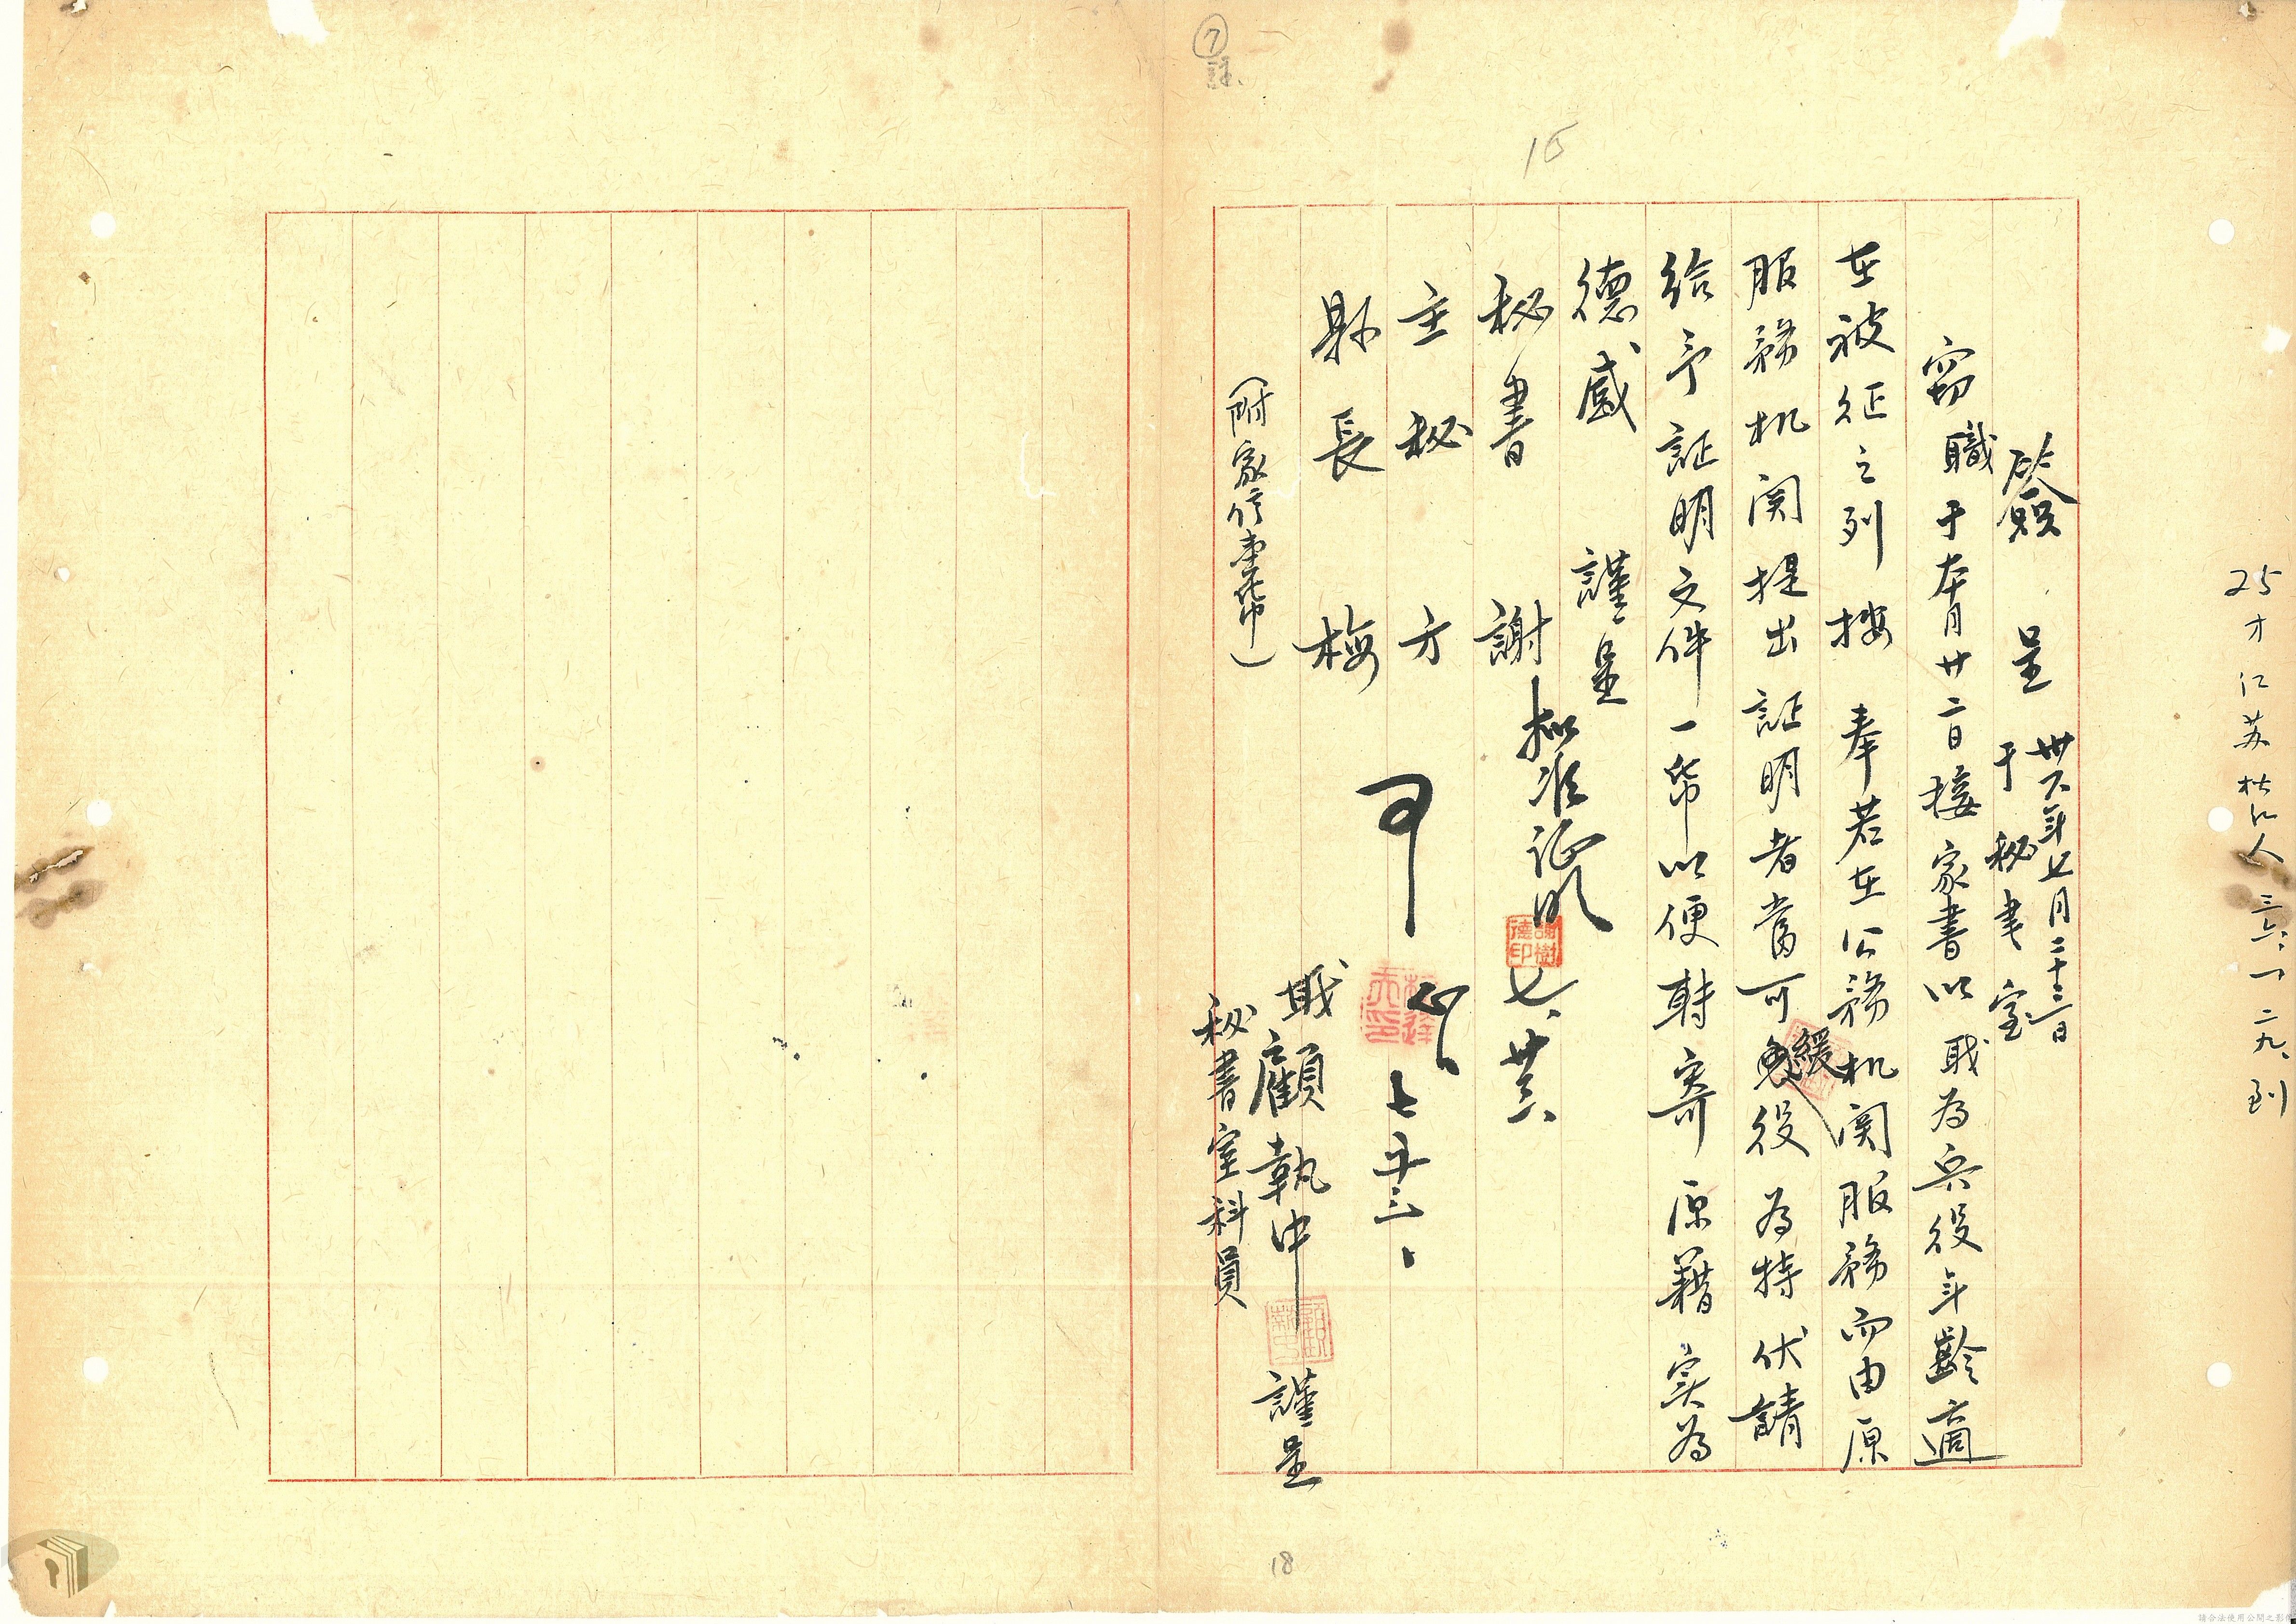 ⑦
15
25才江苏松江人 三六、一、二九、到
簽呈 卅六年七月二十三日
于秘書室
竊職于本月廿二日接家書以職為兵役年齡適
在被征之列按奉若在公務机関服務而由原
服務机関提出証明者當可緩役為特伏請
給予証明文件一帋以便転寄原籍实為
德感 謹呈
秘書 謝 拟准证明 七、廿三、
謝樹德印
主秘 方
縣長 梅 可 七、廿三、
職顧執中 謹呈
秘書室科員
(附家信壹帋)
18
請合法使用公開之影像